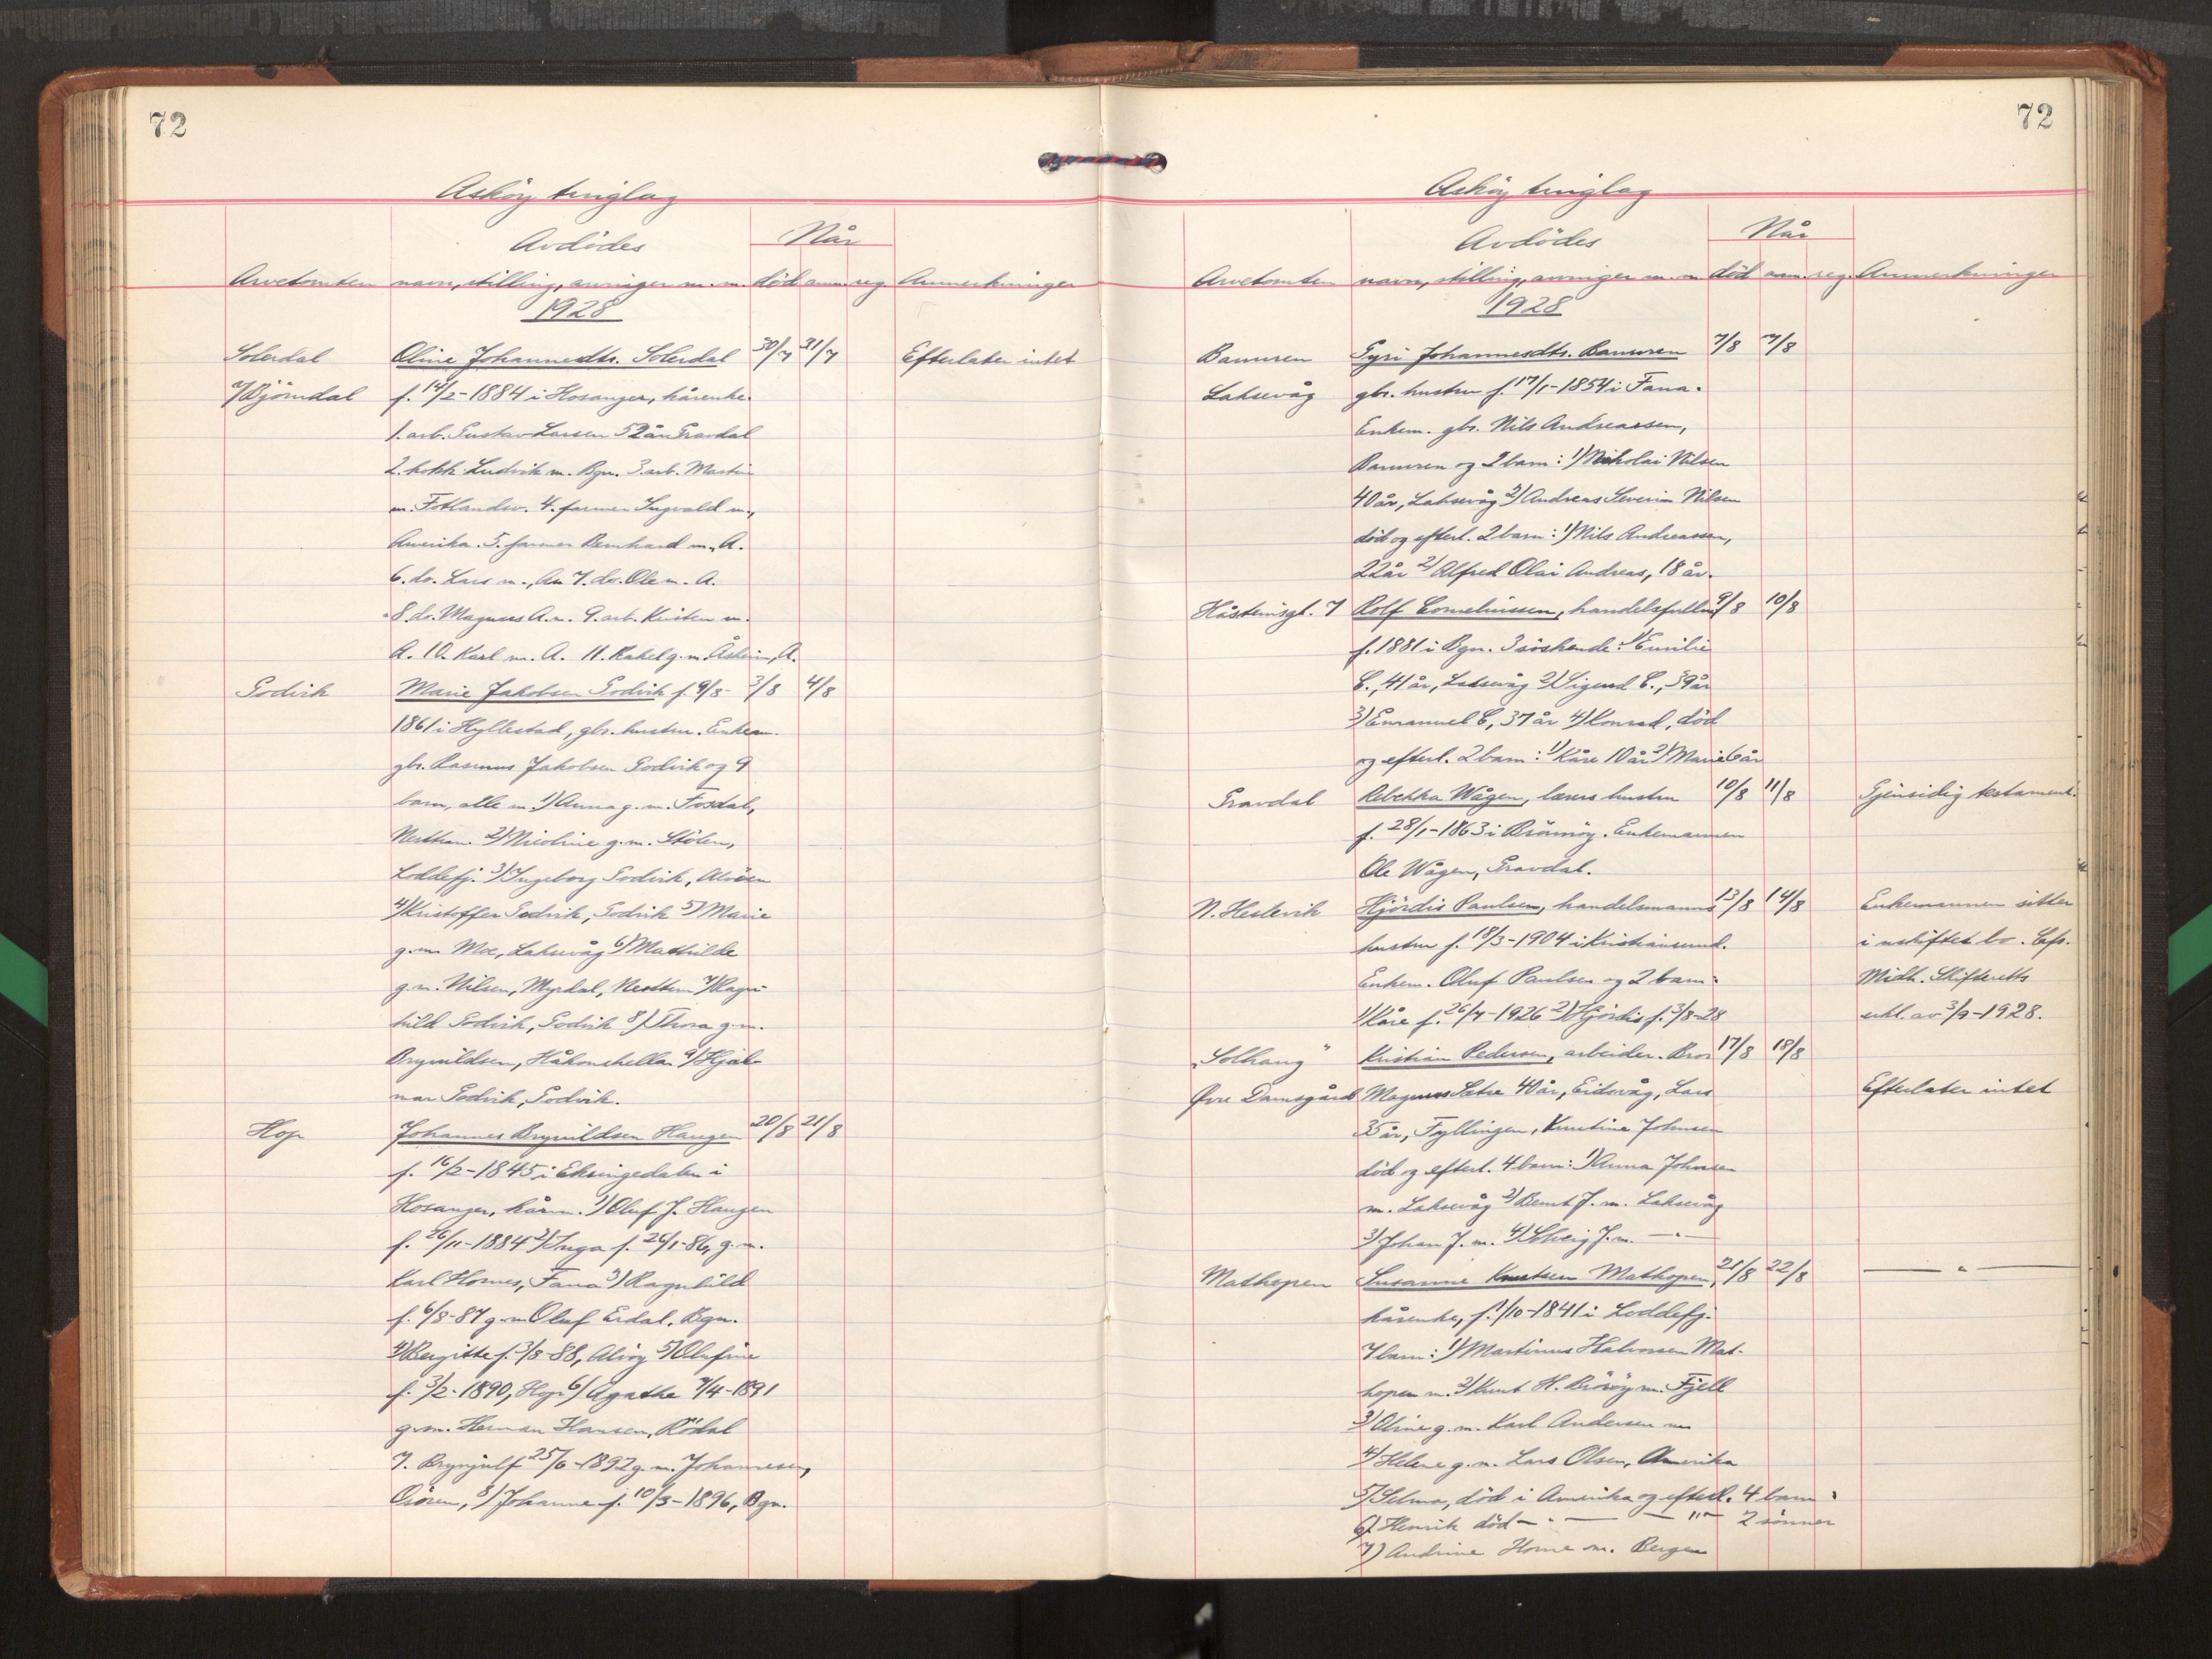 72
Askøy tinglag
Avdødes
Når
Arvetomten navn, stilling, arvinger m. m. død anm. reg. Anmerkninger
1928
Solerdal Oline Johannesdtr. Solerdal 30/7 31/7 Efterlater intet
f. 14/2-1884 i Hosanger, kårenke.
1. arb. Gustav Larsen 52 år Gravdal
2. kokk Ludvik m. Bgn. 3. arb. Martin
m. Fotlandsv. 4. farmer Ingvald m.,
Amerika. 5. farmer Bernhard m., A.
6. do. Lars m., Am 7. do. Ole m. A.
8. do. Magnus A. m. 9. arb. Kristen m.
A. 10. Karl m. A. 11. Rakel g. m. Åsheim, A.
Godvik Marie Jakobsen Godvik f. 9/8- 3/8 4/8
1861 i Hyllestad, gbr. hustru. Enkem.
gbr. Rasmus Jakobsen Godvik og 9
barn, alle m. 1) Anna g. m. Fosdal,
Nesttun. 2) Nicoline g. m. Stølen,
Loddefj. 3) Ingeborg Godvik, Alvøen
4) Kristoffer Godvik, Godvik 5) Marie
g. m. Moe, Laksevåg 6) Mathilde
g. m. Nilsen, Myrdal, Nesttun 7) Ragn-
hild Godvik, Godvik 8) Thora g. m.
Brynildsen, Håkonshella 9) Hjal-
mar Godvik, Godvik.
Hop Johannes Brynildsen Haugen 20/8 21/8
f. 16/2-1845 i Eksingedalen i
Hosanger, kårm. 1) Oluf J. Haugen
f. 26/11-1884 2) Inga f. 26/1-86, g. m.
Karl Hornes, Fana 3) Ragnhild
f. 6/8-87 g. m. Oluf Erdal, Bgn.
4) Bergitte f. 3/8-88, Alvøy 5) Olufine
f. 3/2-1890, Hop 6) Agathe 7/4-1891
g. m. Herman Hansen, Rödal
7. Brynjulf 25/6-1892 g. m. Johannesen,
8) Johanne f. 10/3-1896, Bgn.
72
Askøy tinglag
Avdødes
Når
Arvetomten navn, stilling, arvinger m. m. død anm. reg. Anmerkninger
1928
Banuren Gyri Johannesdtr. Banuren 7/8 7/8
Laksevåg gbr. hustru f. 17/1-1854 i Fana.
Enkem. gbr. Nils Andreassen,
Banuren og 2 barn: 1) Nikolai Nilsen
40 år, Laksevåg 2) Andreas Severin Nilsen
død og efterl. 2 barn: 1) Nils Andreassen,
22 år 2) Alfred Olai Andreas, 18 år.
Håsteinsgt. 7 Rolf Corneliussen, handelsfullm. 9/8 10/8
f. 1881 i Bgn. 3 søskende: 1) Emilie
C., 41 år, Laksevåg 2) Sigurd C., 39 år
3) Emanuel C, 37 år 4) Konrad, død
og efterl. 2 barn: 1) Kåre 10 år 2) Marie 6 år
Gravdal Rebekka Wågen, lærers hustru 10/8 11/8 Gjensidig testament.
f. 28/1-1863 i Brönnöy. Enkemannen
Ole Wågen, Gravdal.
N. Hestevik Hjördis Paulsen, handelsmanns 13/8 14/8 Enkemannen sitter
hustru f. 18/3-1904 i Kristiansund. i uskiftet bo. Cfr.
Enkem. Oluf Paulsen og 2 barn: Midh. Skifteretts
1) Kåre f. 26/7-1926 2) Hjördis f. 3/8-28 utl. av 3/9-1928.
"Solhaug" Kristian Pedersen, arbeider. Bror 17/8 18/8
Øvre Damsgård Magnus Sætre 40 år, Eidsvåg, Lars Efterlater intet
35 år, Fyllingen, Knutine Johnsen
død og efterl. 4 barn: 1) Anna Johnsen
m. Laksevåg 2) Bernt J. m. Laksevåg
3) Johan J. m. 4) Solveig J. m. — " —
Mathopen Susanne Knutsen Mathopen, 21/8 22/8 — " —
kårenke, f. 1/10-1841 i Loddefj.
7 barn: 1) Martinus Halvorsen Mat-
hopen m. 2) Knut H. Bröröy m. Fjell
3) Oline g. m. Karl Andersen m
4) Helene g. m. Lars Olsen, Amerika
5) Selma, død i Amerika og efterl. 4 barn
6) Henrik død — " — — " — 2 sønner
7) Andrine Horne m. Bergen